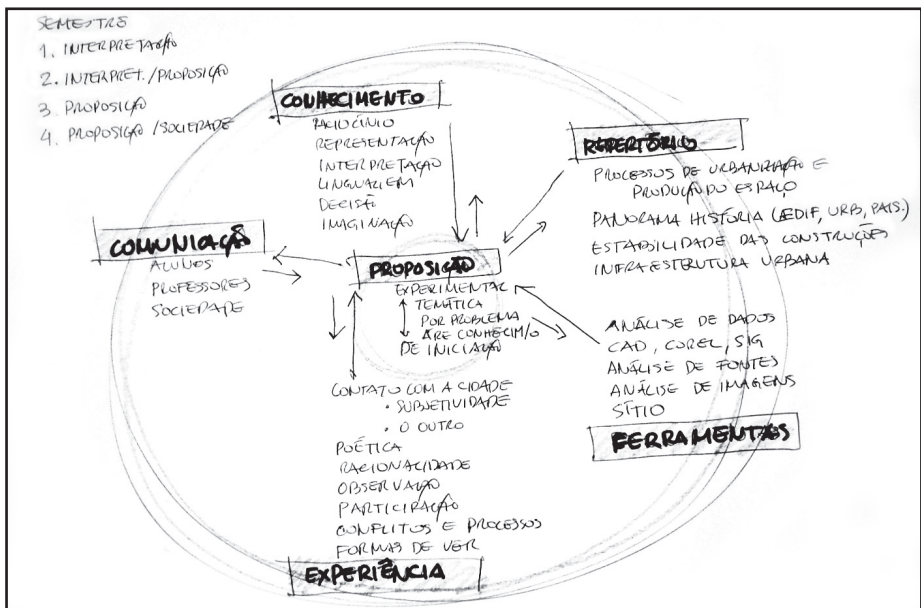 SEMESTRE
1. INTERPRETAÇÃO
2. INTERPRET./PROPOSIÇÃO
3. PROPOSIÇÃO
4. PROPOSIÇÃO/SOCIEDADE
CONHECIMENTO
RACIOCÍNIO
REPRESENTAÇÃO
INTERPRETAÇÃO
LINGUAGEM
DECISÃO
IMAGINAÇÃO
REPERTÓRIO
PROCESSOS DE URBANIZAÇÃO E
PRODUÇÃO DO ESPAÇO
PANORAMA HISTÓRIA (EDIF, URB, PAIS.)
ESTABILIDADE DAS CONSTRUÇÕES
INFRAESTRUTURA URBANA
COMUNICAÇÃO
ALUNOS
PROFESSORES
SOCIEDADE
PROPOSIÇÃO
EXPERIMENTAL
TEMÁTICA
POR PROBLEMA
ÁRE CONHECIM/O
DE INICIAÇÃO
ANÁLISE DE DADOS
CAD, COREL, SIG
ANÁLISE DE FONTES
ANÁLISE DE IMAGENS
SÍTIO
FERRAMENTAS
CONTATO COM A CIDADE
• SUBJETIVIDADE
• O OUTRO
POÉTICA
RACIONALIDADE
OBSERVAÇÃO
PARTICIPAÇÃO
CONFLITOS E PROCESSOS
FORMAS DE VER
EXPERIÊNCIA